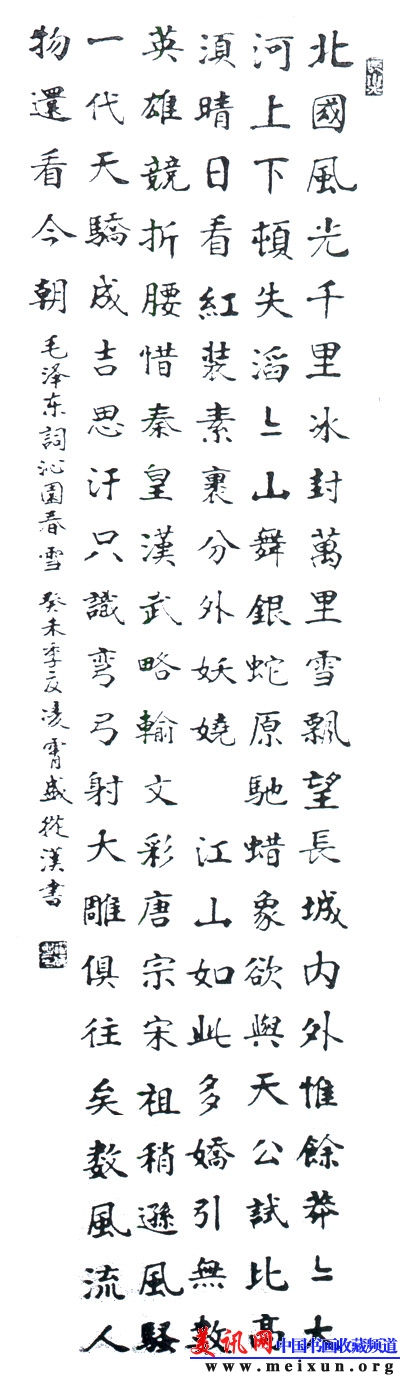 北國風光千里冰封萬里雪飄望長城内外惟餘莽〻大
河上下頓失滔〻山舞銀蛇原馳蜡象欲與天公試比高
須晴日看紅裝素裹分外妖嬈 江山如此多嬌引無数
英雄競折腰惜秦皇漢武略輸文彩唐宗宋祖稍遜風騷
一代天驕成吉思汗只識彎弓射大雕俱往矣数風流人
物還看今朝 毛泽东詞沁園春雪 癸未季夏凌霄盛從漢書
美讯网 中国书画收藏频道
www.meixun.org